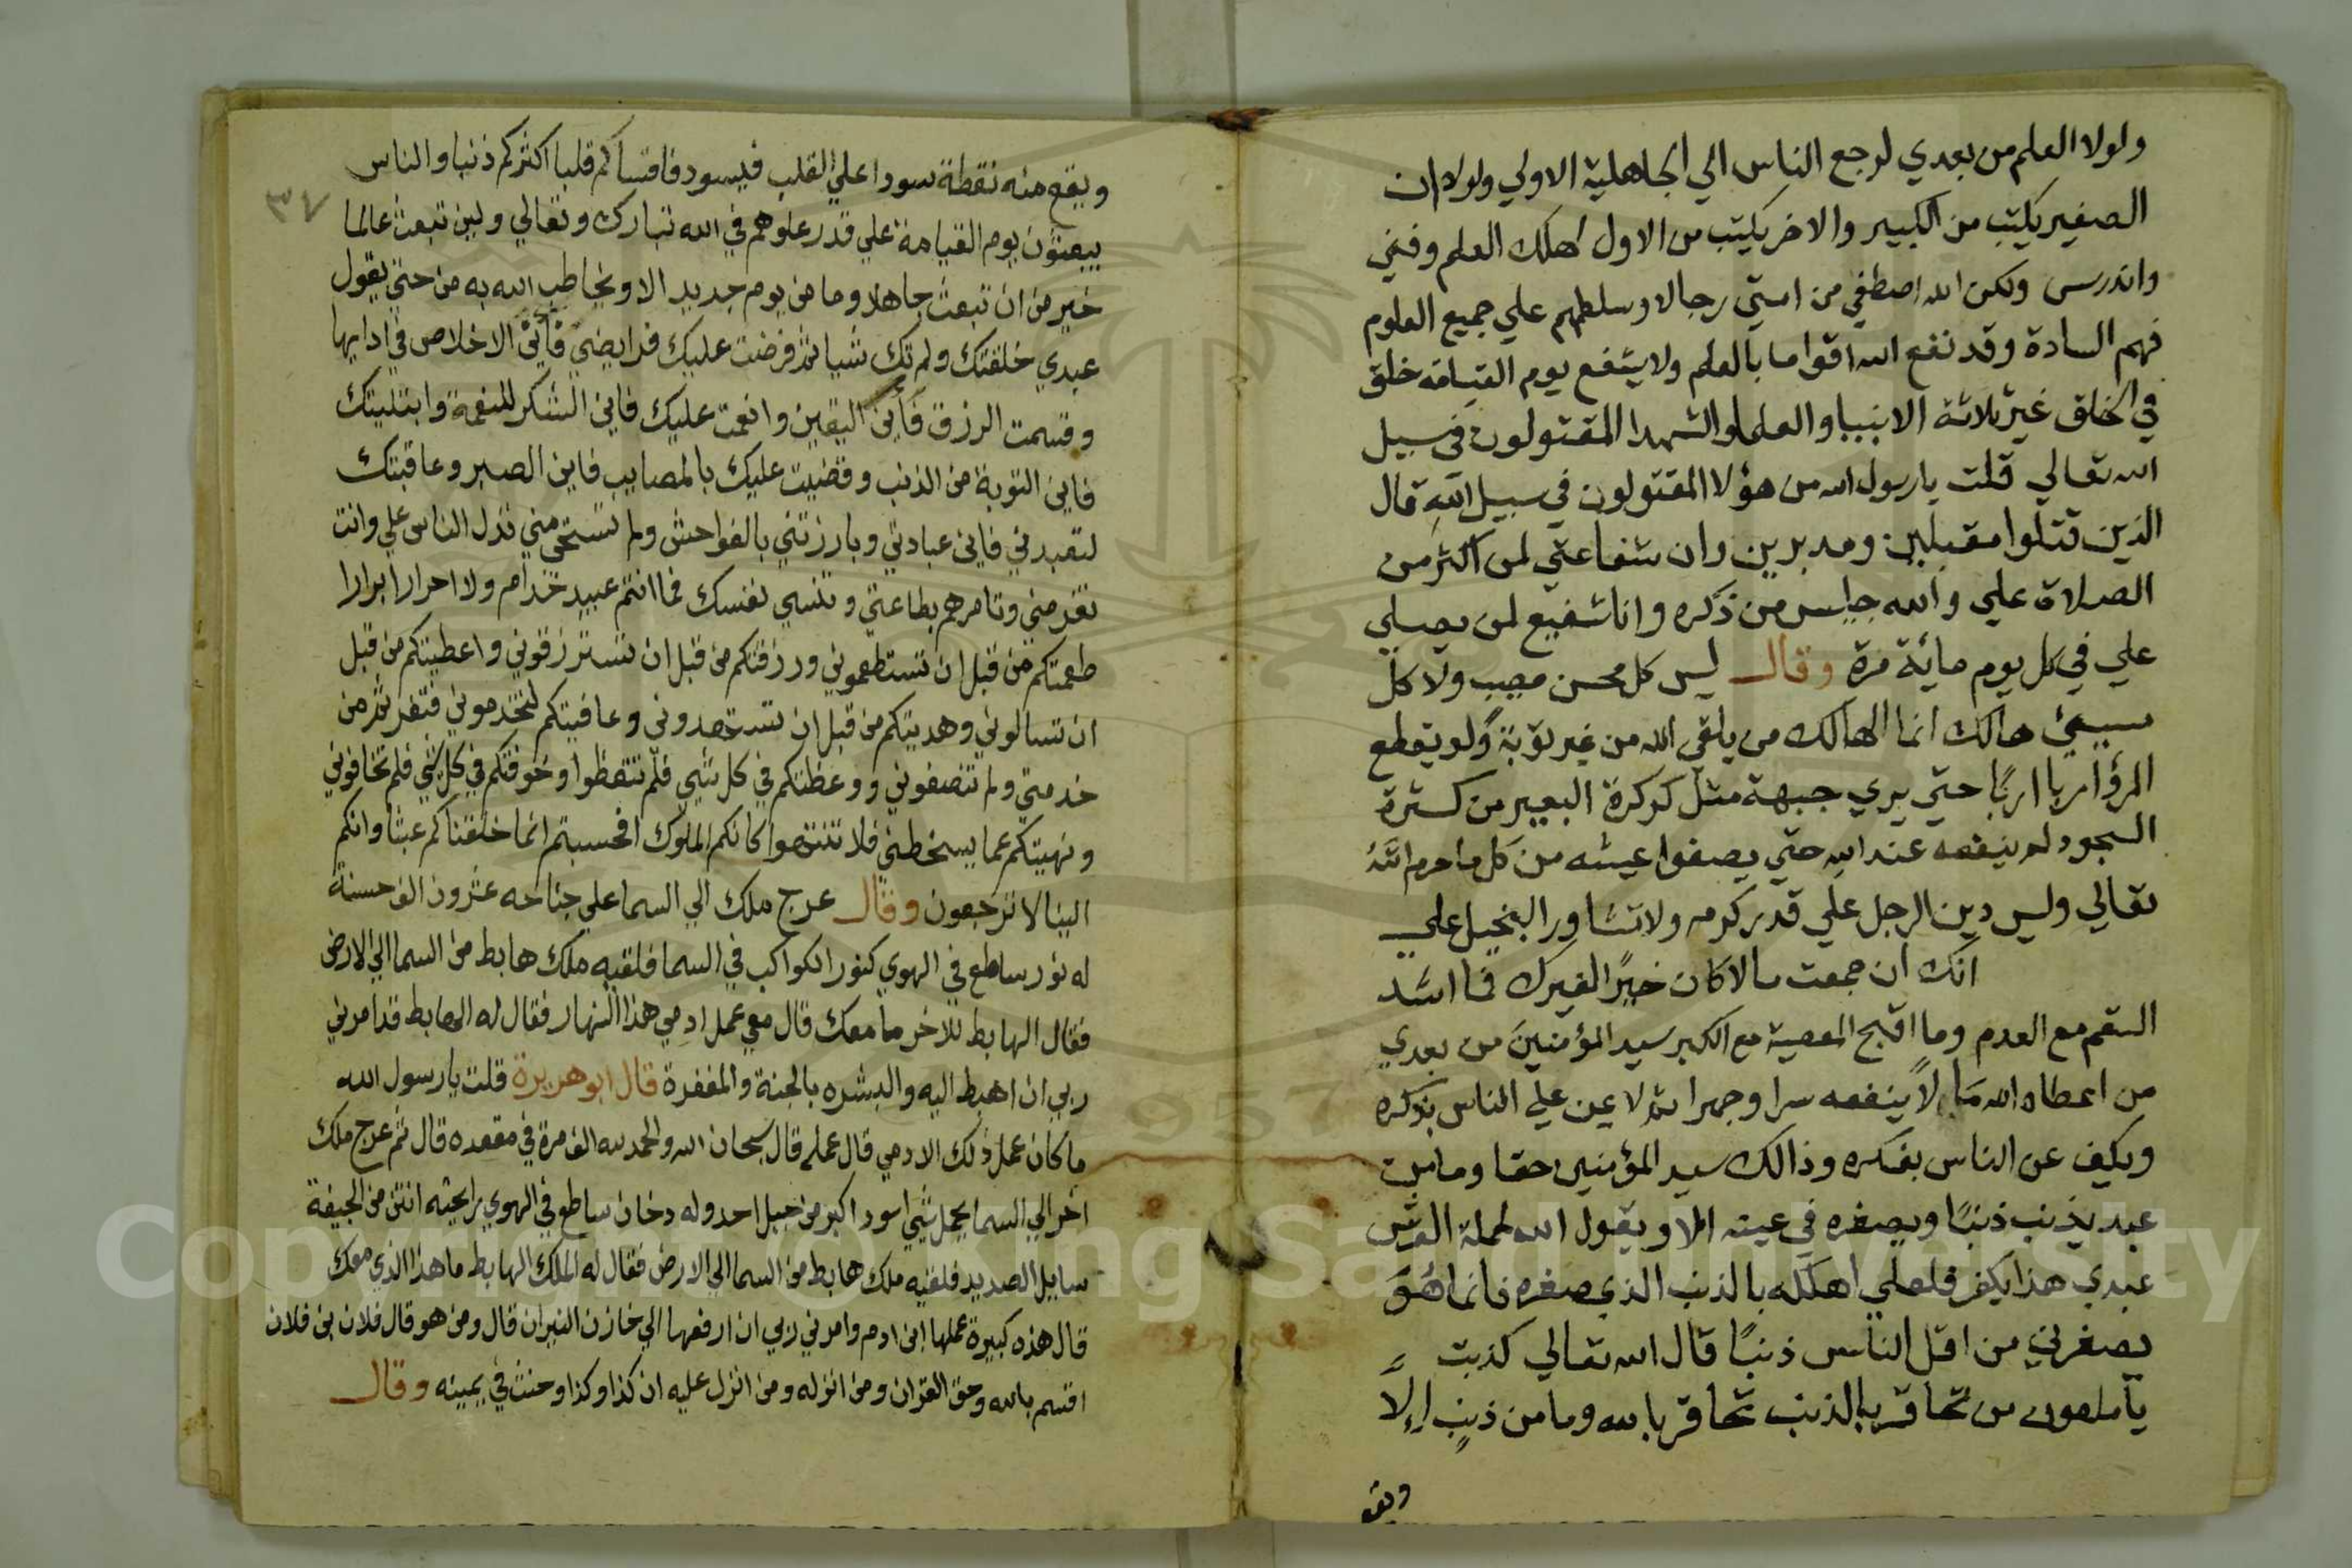 ولولا العلم من بعدي لرجع الناس الي الجاهلية الاولي ولولا ان
الصغير يكتب من الكبير والاخر يكتب من الاول لهلك العلم وفني
واندرس ولكن الله اصطفي من امتي رجالا وسلطهم علي جميع العلوم
فهم السادة وقد نفع الله اقواما بالعلم ولا يشفع يوم القيامة خلق
في الخلق غير ثلاثة الانبيا والعلما والشهدا المقتولون في سبيل
الله تعالي قلت يا رسول الله من هؤلا المقتولون في سبيل الله قال
الذين قتلوا مقبلين ومدبرين وان شفاعتي لمن اكثر من
الصلاة علي والله جليس من ذكره وانا شفيع لمن يصلي
علي في كل يوم مائة مرة وقال ليس كل محسن مصيب ولا كل
مسيئ هالك انما الهالك من يلقي الله من غير توبة ولو يقطع
المرؤ اربا اربًا حتي يري جبهة مثل كركرة البعير من كسثرة
السجود لم ينفعه عند الله حتي يصفوا عيشه من كل ما حرم الله
تعالي وليس دين الرجل علي قدر كرمه ولا تشاور البخيل علي
انك ان جمعت مالا كان خيرًا لغيرك فما اشد
السقم مع العدم وما اقبح المعصية مع الكبر سيد المؤمنين من بعدي
من اعطاه الله مالاً ينفعه سرا وجهرا ثم لا عين علي الناس بذكره
ويكف عن الناس بفكره وذالك سيد المؤمنين حقا وما من
عبد يذنب ذنبًا ويصغره في عينه الا ويقول الله لحملة العرش
عبدي هذا يكفر فلعلي اهلكه بالذنب الذي صغره فانما هُوَ
يصغرني من اقل الناس ذنبًا قال الله تعالي كذبت
يا ملعون من تحاقر بالذنب تحاقر بالله وما من ذنبٍ اِلاً
ويقع
٣٧
ويقع منه نقطة سودا علي القلب فيسود فاقساكم قلبا اكثركم ذنبا والناس
يبعثون يوم القيامة علي قدر علوهم في الله تبارك وتعالي ولين تبعث عالما
خير من ان تبعث جاهلا وما من يوم جديد الا ويخاطب الله به من حتي يقول
عبدي خلقتك ولم تك شيا ثم فرضت عليك فرايضي فأين الاخلاص في ادايها
وقسمت الرزق فأين اليقين وانعمت عليك فاين الشكر للنعمة وابتليتك
فاين التوبة من الذنب وقضيت عليك بالمصايب فاين الصبر وعاقبتك
لتعبدني فاين عبادتي وبارزتني بالفواحش ولم تستحي مني تدل الناس علي وانت
تفر مني وتامرهم بطاعتي وتنسي نفسك فما انتم عبيد خدام ولا احرار ابرارا
طعمتكم من قبل ان تستطعموني ورزقتكم من قبل ان تسترزقوني واعطيتكم من قبل
ان تسالوني وهديتكم من قبل ان تستهدوني وعافيتكم لتخدموني فتفرثم من
خدمتي ولم تنصفوني ووعظتكم في كل شي فلم تتعظوا وخوفتكم في كل شي فلم تخافوني
ونهيتكم عما يسخطني فلا تنتهوا كانكم الملوك افحسبتم انما خلقناكم عبثا وانكم
الينا لا ترجعون وقال عرج ملك الي السما علي جناحه عشرون الف حسنة
له نور ساطع في الهوي كنور الكواكب في السما فلقيه ملك هابط من السما الي الارض
فقال الهابط للاخر ما معك قال معي عمل ادمي هذا النهار فقال له الهابط قد امرني
ربي ان اهبط اليه والبشره بالجنة والمغفرة قال ابو هريرة قلت يا رسول الله
ما كان عمل ذلك الادمي قال عمله قال سبحان الله والحمد لله الف مرة في مقعده قال ثم عرج ملك
اخر الي السما يحمل شي اسود اكبر من جبل احد وله دخان ساطع في الهوي رايحته انتن من الجيفة
سايل الصديد فلقيه ملك هابط من السما الي الارض فقال له الملك الهابط ما هذا الذي معك
قال هذه كبيرة عملها ابن ادم وامرني ربي ان ارفعها الي خازن النيران قال ومن هو قال فلان بن فلان
اقسم بالله وحق القران ومن انزله ومن انزل عليه ان كذا وكذا وحنث في يمينه وقال
Copyright © King Saud University
1957